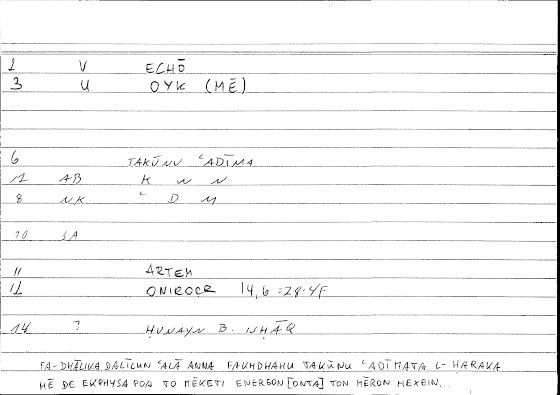 1 V ECHŌ
3 U OYK (MĒ)
6 TAKŪNU ʿADĪMA
11 AB K W N
8 NK ʿ D M
10 SA
11 ARTEM
12 ONIROCR 14,6 = 28.4F
14 ? ḤUNAYN B. ISḤĀQ
FA-DHĀLIKA DALĪLUN ʿALĀ ANNA FAKHDHAHU TAKŪNU ʿADĪMATA L-ḤARAKA
MĒ DE EKPHYSA POA TO MĒKETI ENERGON [ONTA] TON MĒRON HEXEIN...